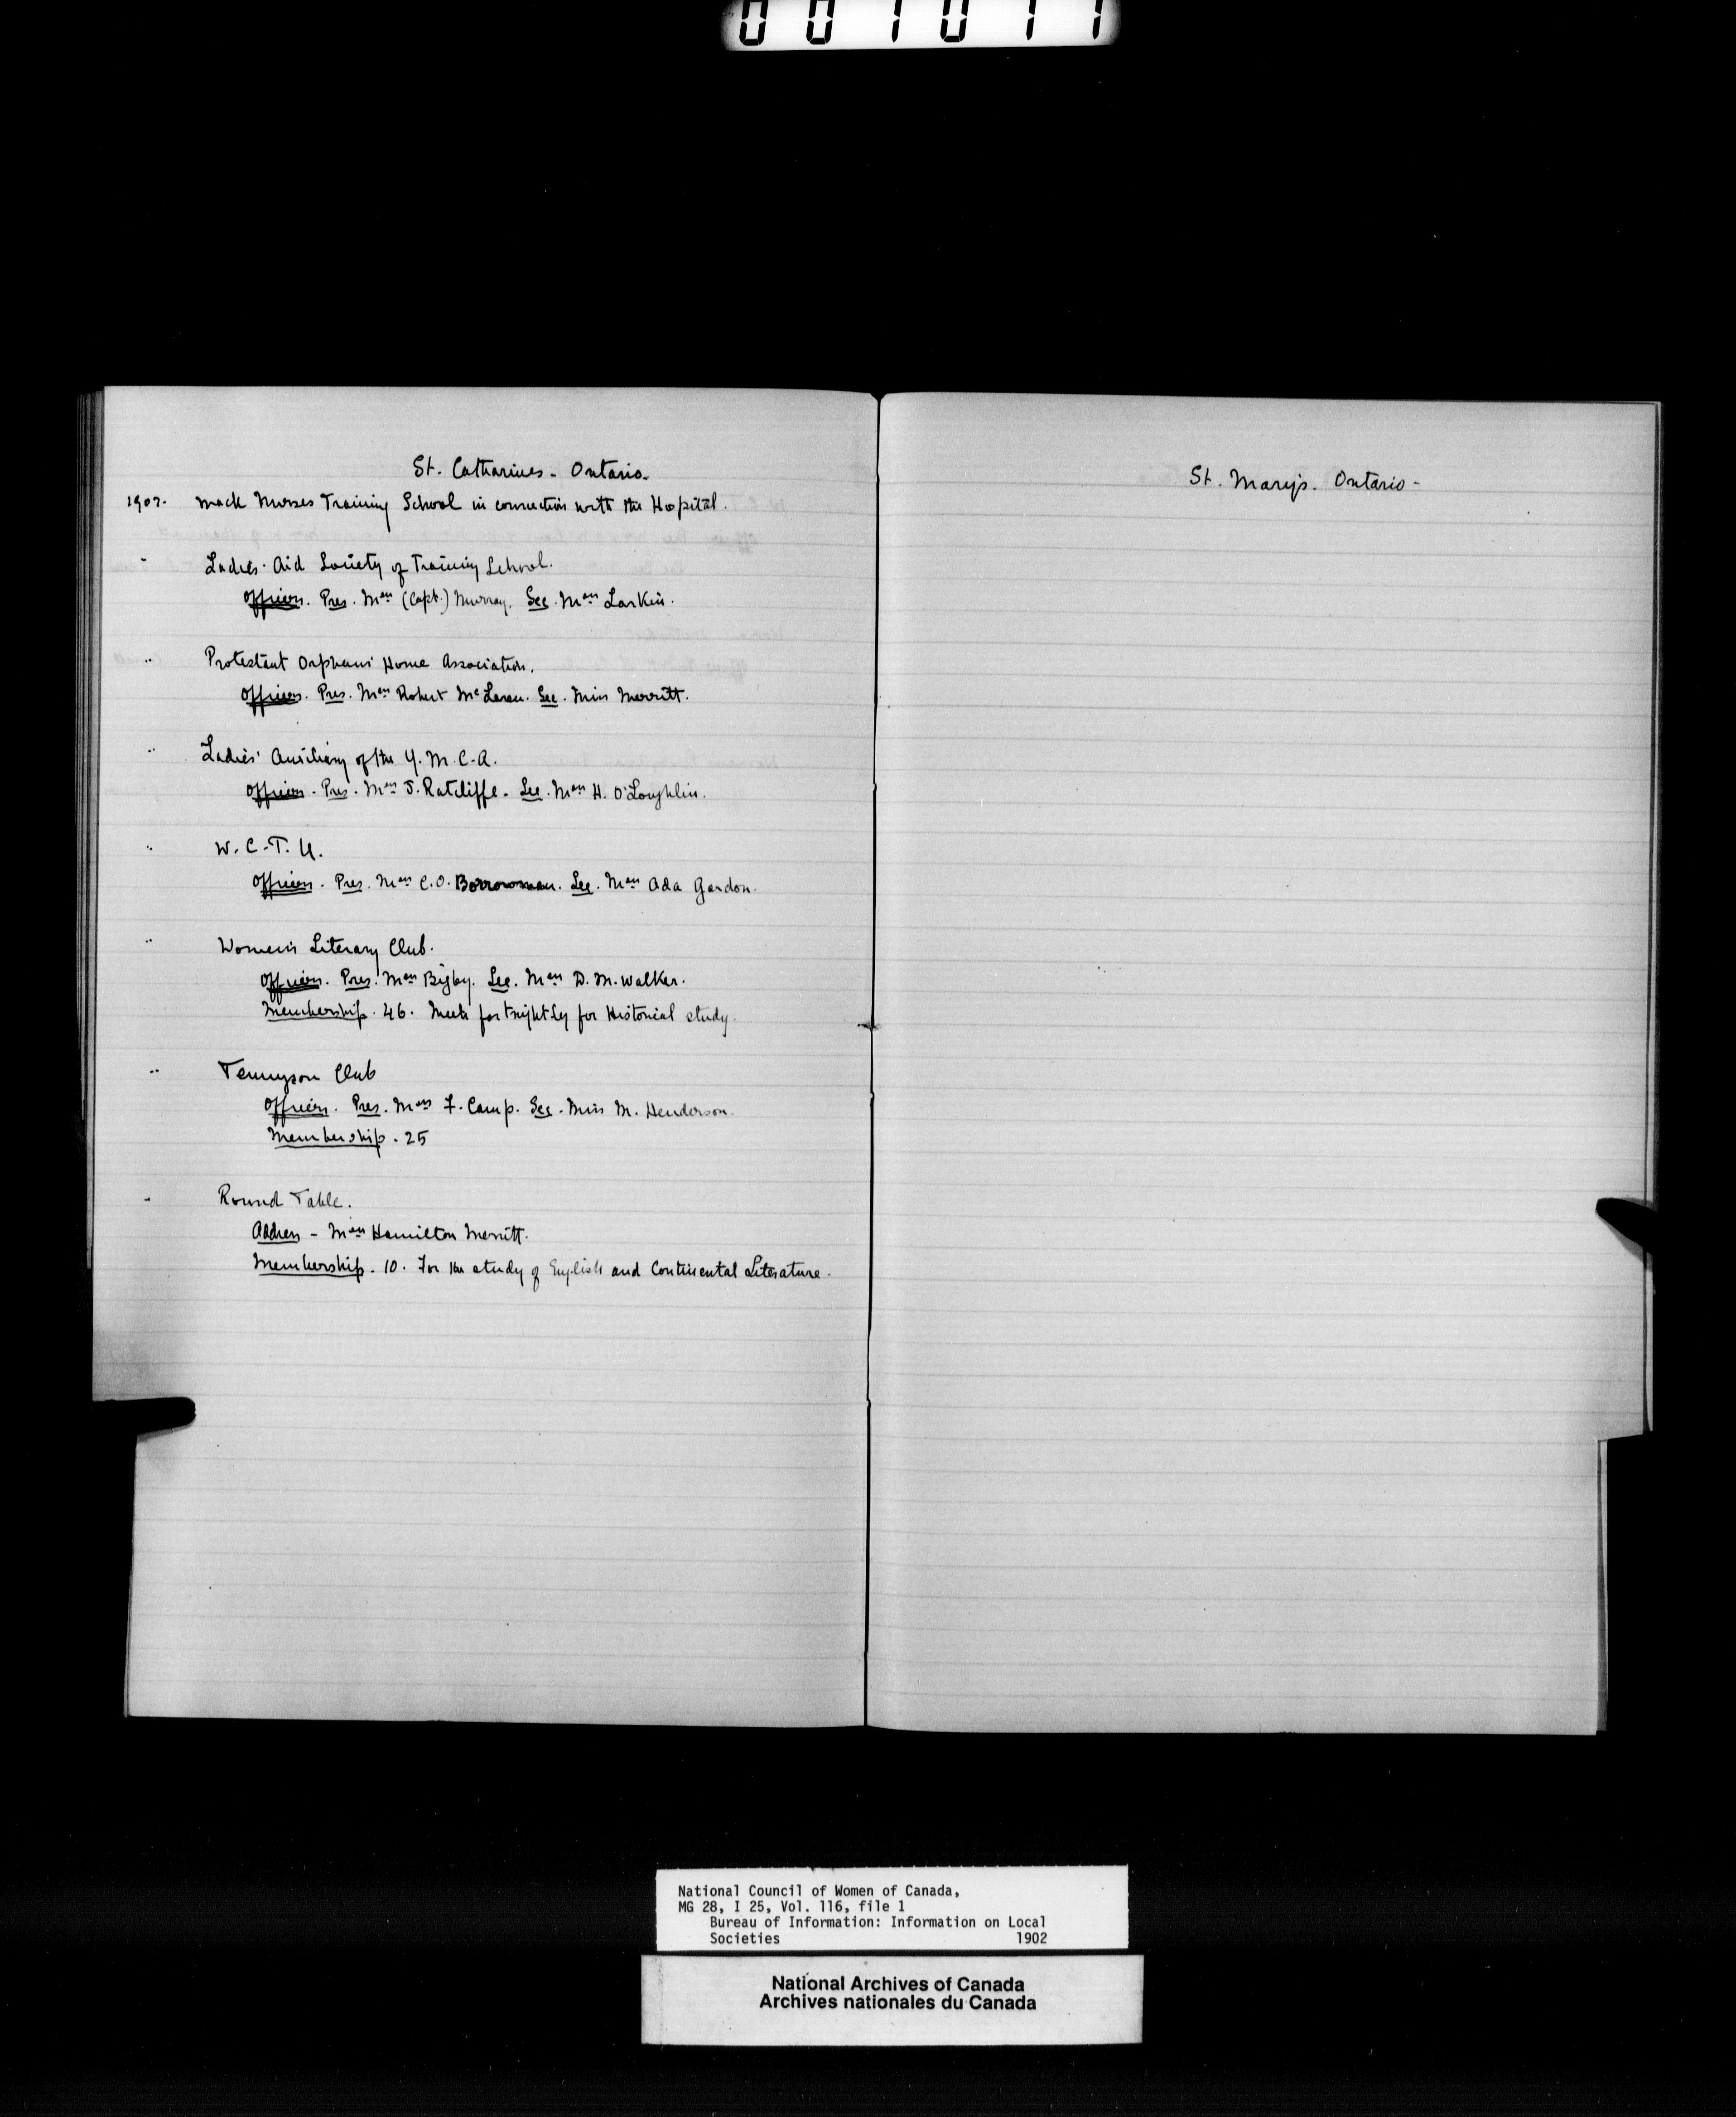 001011
St. Catharines - Ontario.
1902. Mack Nurses Training School in connection with the Hospital.
" Ladies' Aid Society of Training School.
Officers. Pres. Mrs (Capt.) Murray. Sec. Mrs Larkin.
" Protestant Orphans' Home Association.
Officers. Pres. Mrs Robert McLaren. Sec. Miss Merritt.
" Ladies' Auxiliary of the Y.M.C.A.
Officers - Pres. Mrs J. Ratcliffe. Sec. Mrs H. O'Loughlin.
" W.C.T.U.
Officers. Pres. Mrs C.O. Borrowman. Sec. Mrs Ada Gordon.
" Women's Literary Club.
Officers. Pres. Mrs Bigby. Sec. Mrs D. M. Walker.
Membership. 46. Meets fortnightly for Historical study.
" Tennyson Club
Officers. Pres. Mrs F. Camp. Sec. Miss M. Henderson.
Membership. 25
" Round Table.
Address - Mrs Hamilton Merritt.
Membership. 10. For the study of English and Continental Literature.
St. Mary's. Ontario -
National Council of Women of Canada,
MG 28, I 25, Vol. 116, file 1
Bureau of Information: Information on Local
Societies 1902
National Archives of Canada
Archives nationales du Canada